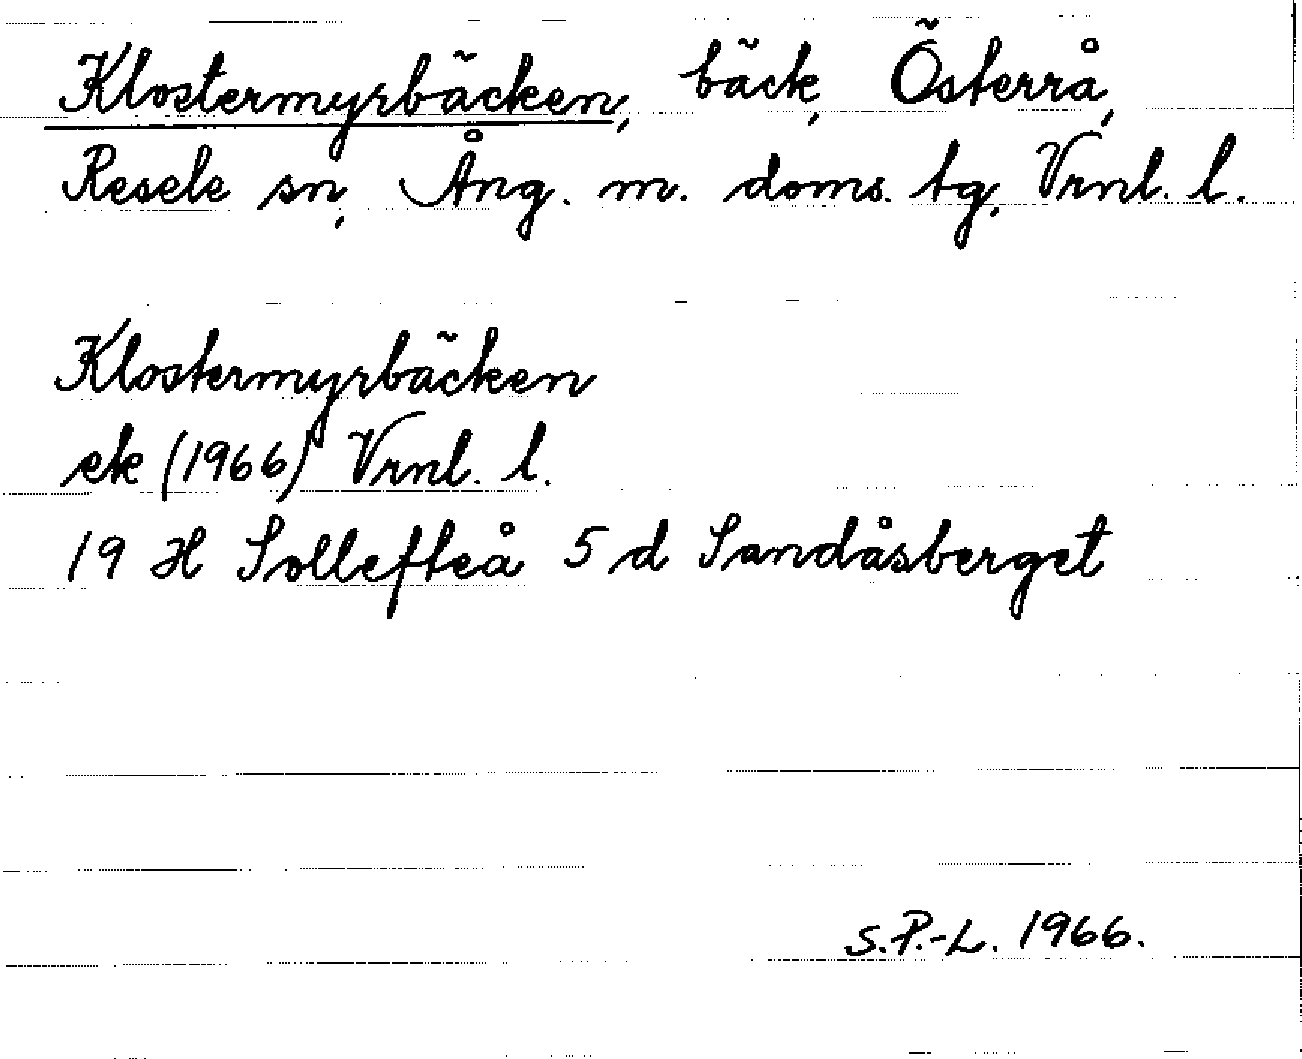 Klostermyrbäcken, bäck, Österrå,
Resele sn, Ång. m. doms. tg, Vrnl. l.
Klostermyrbäcken
ek (1966) Vrnl. l.
19 H Sollefteå 5 d Sandåsberget
S.P.-L. 1966.